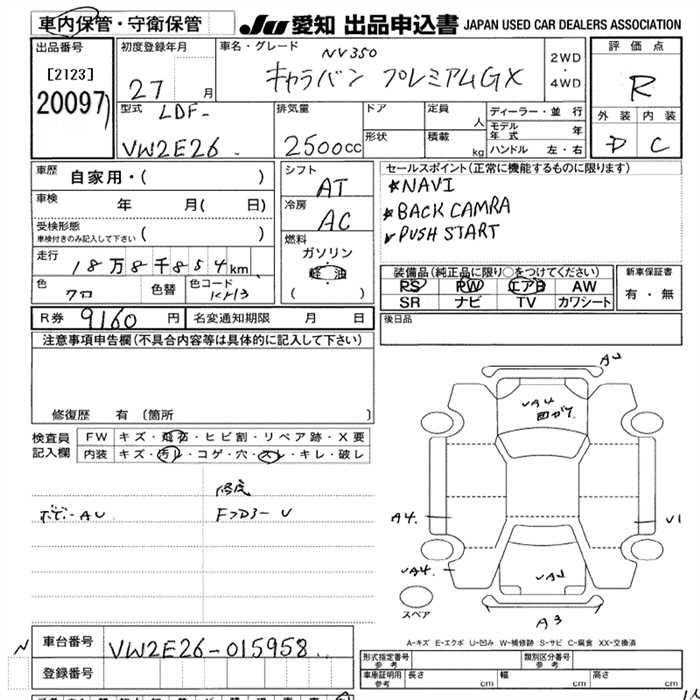 車内保管・守衛保管 JU 愛知 出品申込書 JAPAN USED CAR DEALERS ASSOCIATION
出品番号
[2123]
20097
初度登録年月
27 月
車名・グレード
NV350
キャラバン プレミアムGX
2WD
・
4WD
評価点
R
外装 内装
D C
型式 LDF-
VW2E26
排気量
2500cc
ドア
形状
定員
人
積載
kg
ディーラー・並行
モデル年式 年
ハンドル 左・右
車歴 自家用・( )
車検 年 月( 日)
受検形態
車検付きのみ記入して下さい ( )
走行 18万8千854km
色 クロ
色替
色コード KH3
シフト
AT
冷房
AC
燃料
ガソリン
( )
セールスポイント(正常に機能するものに限ります)
NAVI
BACK CAMRA
PUSH START
装備品(純正品に限り○をつけてください)
PS PW エアB AW
SR ナビ TV カワシート
新車保証書
有・無
後日品
R券 9160 円
名変通知期限 月 日
注意事項申告欄(不具合内容等は具体的に記入して下さい)
修復歴 有 (箇所 )
検査員
記入欄
FW キズ・飛石・ヒビ割・リペア跡・X要
内装 キズ・汚レ・コゲ・穴・スレ・キレ・破レ
ボデーAU
AU
VA4
A4
V1
VA4
A3
スペア
A-キズ E-エクボ U-凹み W-補修跡 S-サビ C-腐食 XX-交換済
車台番号 VW2E26-015958
登録番号
形式指定番号
参考
類別区分番号
参考
車車証明用
参考
長さ cm
幅 cm
高さ cm